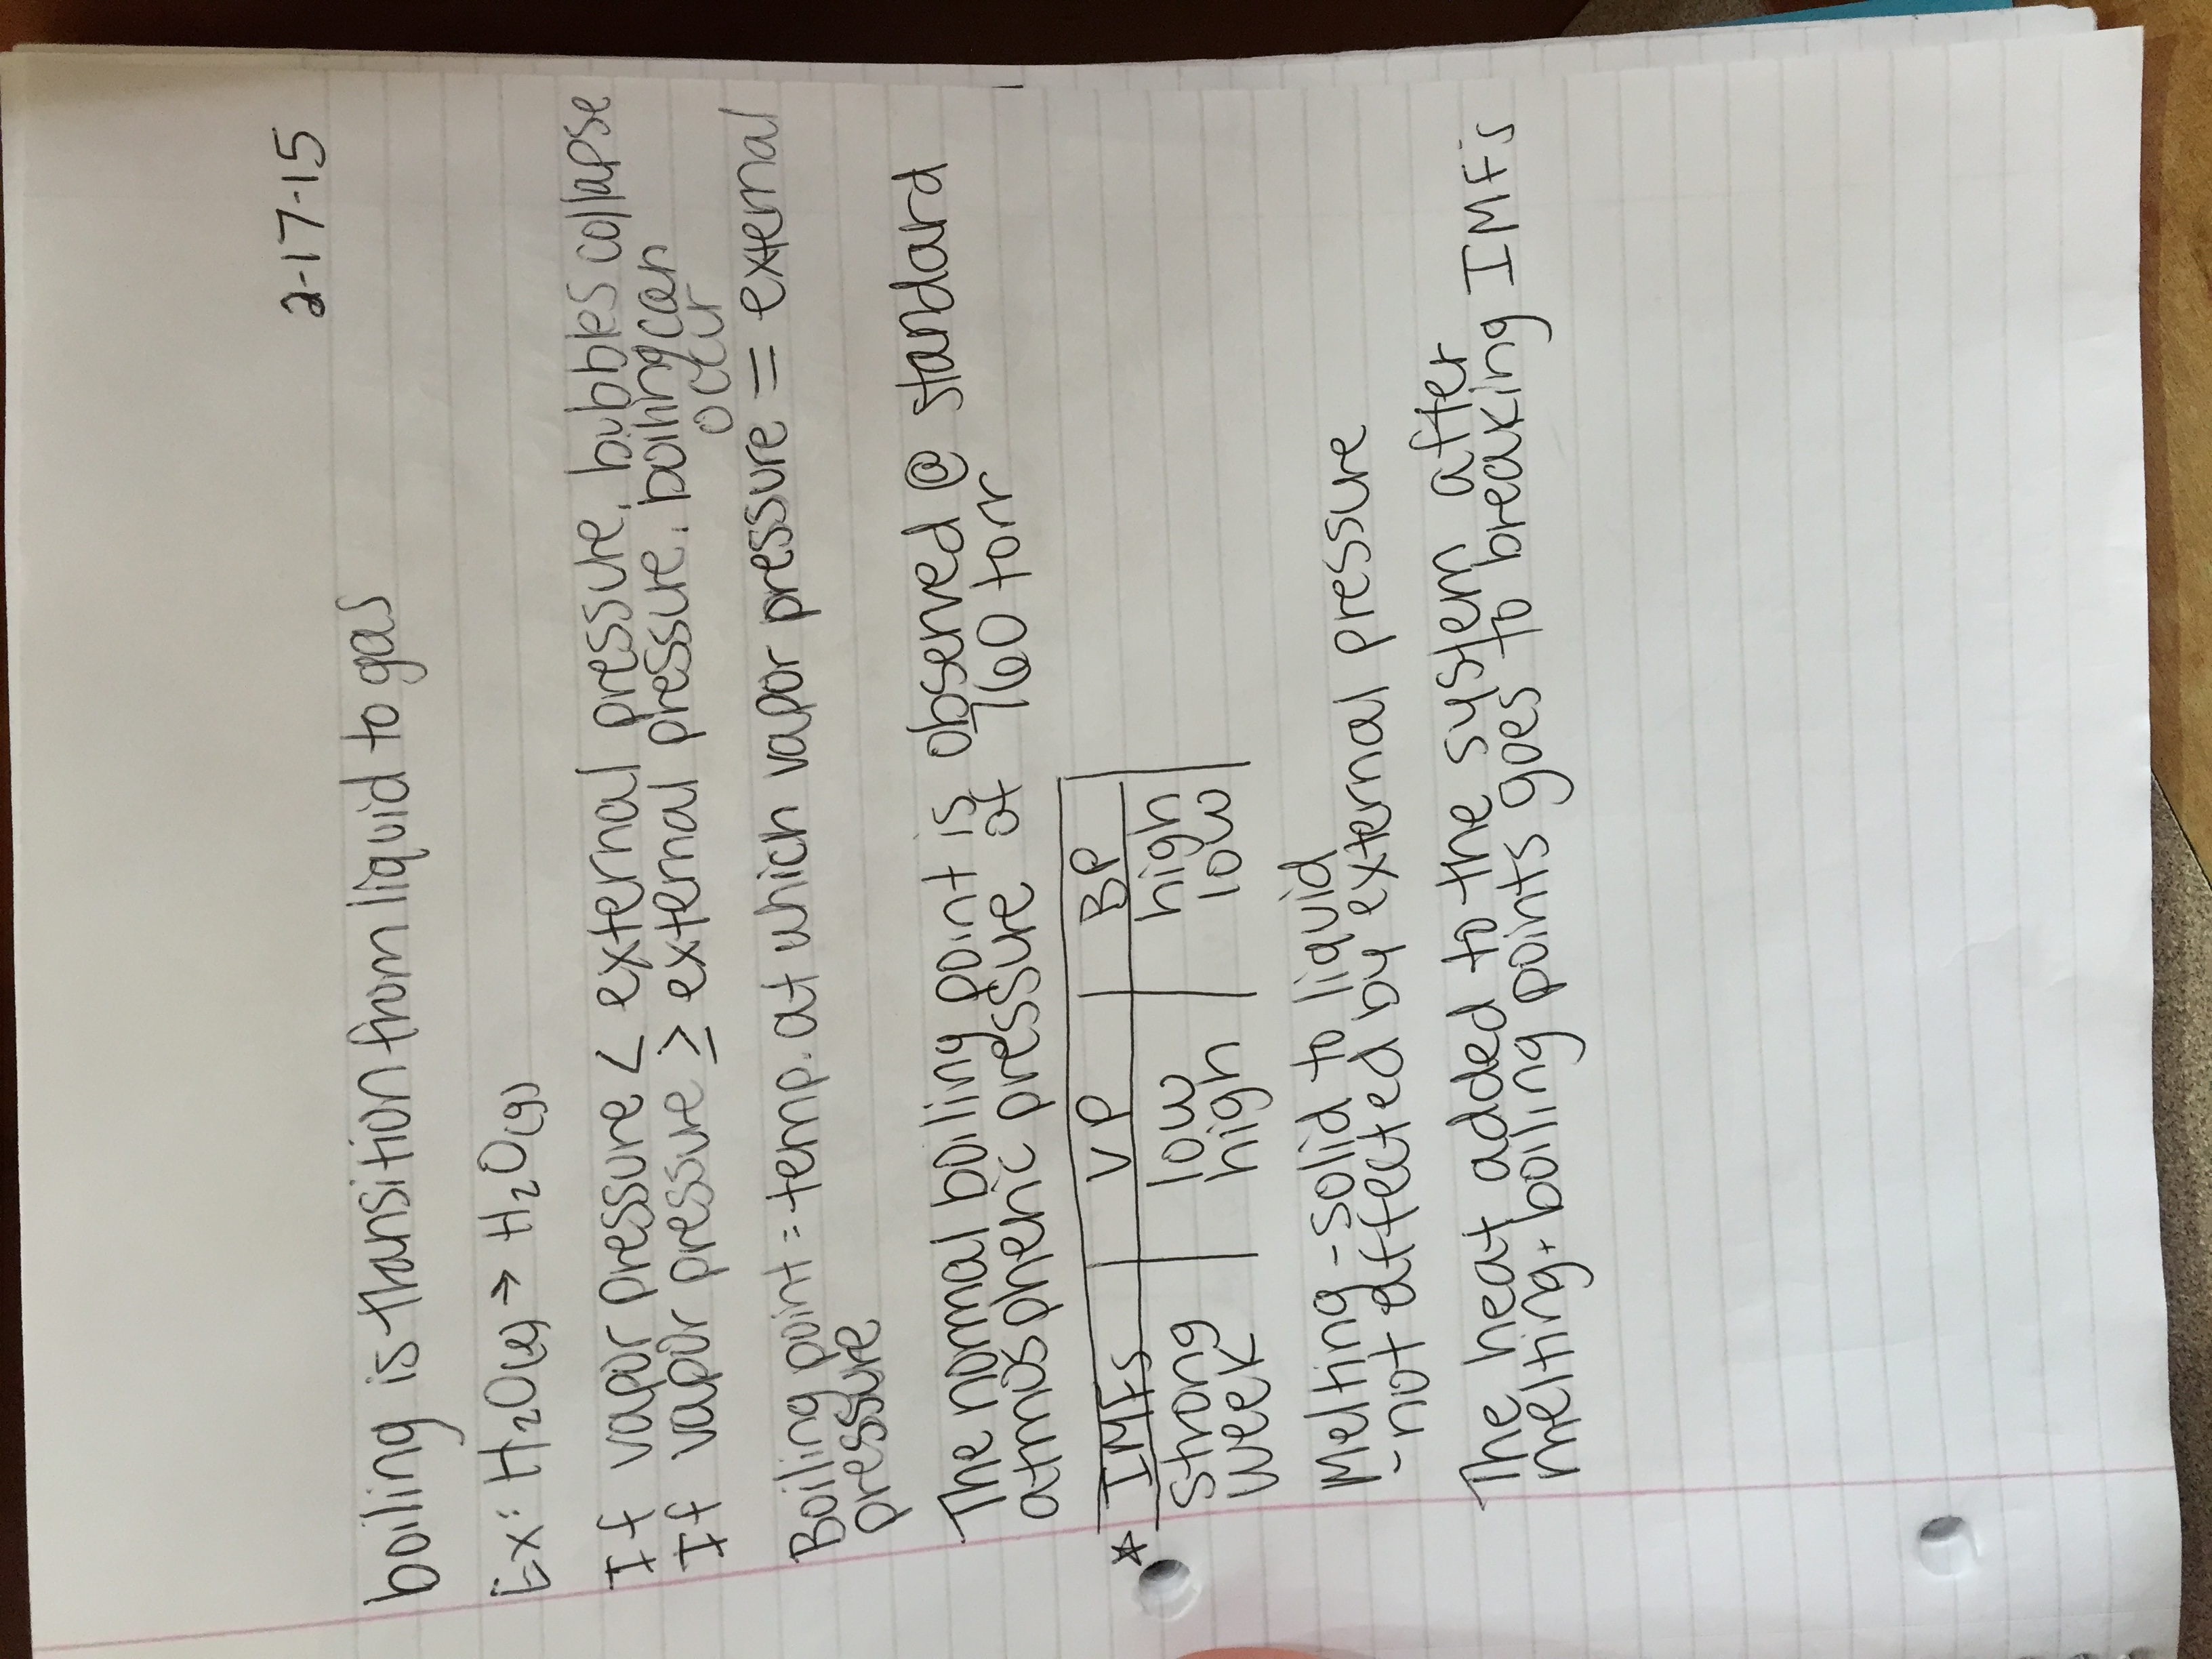 2-17-15
boiling is transition from liquid to gas
Ex: H₂O(l) → H₂O(g)
If vapor pressure < external pressure, bubbles collapse
If vapor pressure ≥ external pressure, boiling can
occur
Boiling point = temp. at which vapor pressure = external
pressure
The normal boiling point is observed @ standard
atmospheric pressure of 760 torr
☆ IMFs VP BP
strong low high
week high low
Melting - solid to liquid
- not affected by external pressure
The heat added to the system after
melting + boiling points goes to breaking IMFs